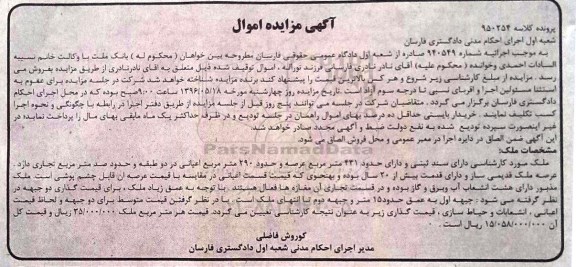 آگهی مزایده اموال
پرونده کلاسه ۹۵۰۲۵۴
شعبه اول اجرای احکام مدنی دادگستری فارسان
به موجب اجرائیه شماره ۹۴۰۵۴۹ صادره از شعبه اول دادگاه عمومی حقوقی فارسان مطروحه بین خواهان ( محکوم له ) بانک ملت با وکالت خانم نسیبه
السادات احمدی وخوانده ( محکوم علیه) آقای نادر نادری فارسانی فرزند نورالله ، اموال توقیف شده ذیل متعلق به آقای نادرنادری از طریق مزایده بفروش می
رسد . مزایده از مبلغ کارشناسی زیر شروع و هر کس بالاترین قیمت را پیشنهاد کند برنده مزایده شناخته خواهد شد شرکت در جلسه مزایده برای عموم به
استثنا مسئولین اجرا و اقربای نسبی تا درجه سوم آزاد است .تاریخ مزایده روز چهارشنبه مورخه ۱۳۹۶/۰۵/۱۸ ساعت ۹:۰۰صبح بوده که در محل اجرای احکام
دادگستری فارسان برگزار می گردد . متقاضیان شرکت در جلسه می توانند پنج روز قبل از جلسه مزایده از طریق دفتر اجرا در رابطه با چگونگی و نحوه اجرا
کسب تکلیف نمایند . خریدار بایستی حداقل ده درصد بهای اموال راهمان در جلسه تودیع و در ظرف حداکثر یک ماه مابقی بهای مال را پرداخت نماید در
غیر اینصورت سپرده تودیع شده به نفع دولت ضبط و آگهی مجدد صادر خواهد شد.
این آگهی ضمن الصاق در دایره اجرا در معبر عمومی و محل فروش الصاق می شود.
مشخصات ملک:
ملک مورد کارشناسی دارای سند ثبتی و دارای حدود ۴۳۱ متر مربع عرصه و حدود ۲۹۰ متر مربع اعیانی در دو طبقه و حدود صد متر مربع تجاری دارد .
عرصه ملک قدیمی ساز و دارای قدمت بیش از ۲۰ سال بوده و بنحوی که قیمت قسمت اعیانی در مقایسه با قیمت عرصه آن قابل چشم پوشی است ملک
مذبور دارای هشت انشعاب آب وبرق و گاز بوده و در قسمت تجاری آن مغازه ها فعال هستند . با توجه به عمق زیاد ملک ، برای قیمت گذاری دو جبهه در
نظر گرفته می شود : جبهه اول به عمق حدود۱۵ متر و جبهه دوم تا انتهای ملک است . با در نظر گرفتن قیمت متوسط برای دو جبهه و لحاظ قیمت
اعیانی ، انشعابات و حیاط سازی ، قیمت گذاری زیر به عنوان نتیجه کارشناسی تعیین می گردد. قیمت هر متر مربع ملک ۳۵/۰۰۰/۰۰۰ ریال و قیمت کل
آن ۱۵/۰۵۸/۰۰۰/۰۰۰ ریال است .
کوروش فاضلی
مدیر اجرای احکام مدنی شعبه اول دادگستری فارسان
ParsNamadData